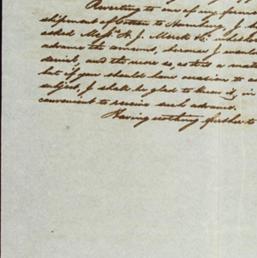 Reverting to one of my former
shipment of Cotton to
asked Messrs A. J. Merck
advance the amount, because I
denial, and the more so, as it is a
but if you should have occasion to
subject, I shall be glad to know it, in
convenient to receive such advance.
Having nothing further to